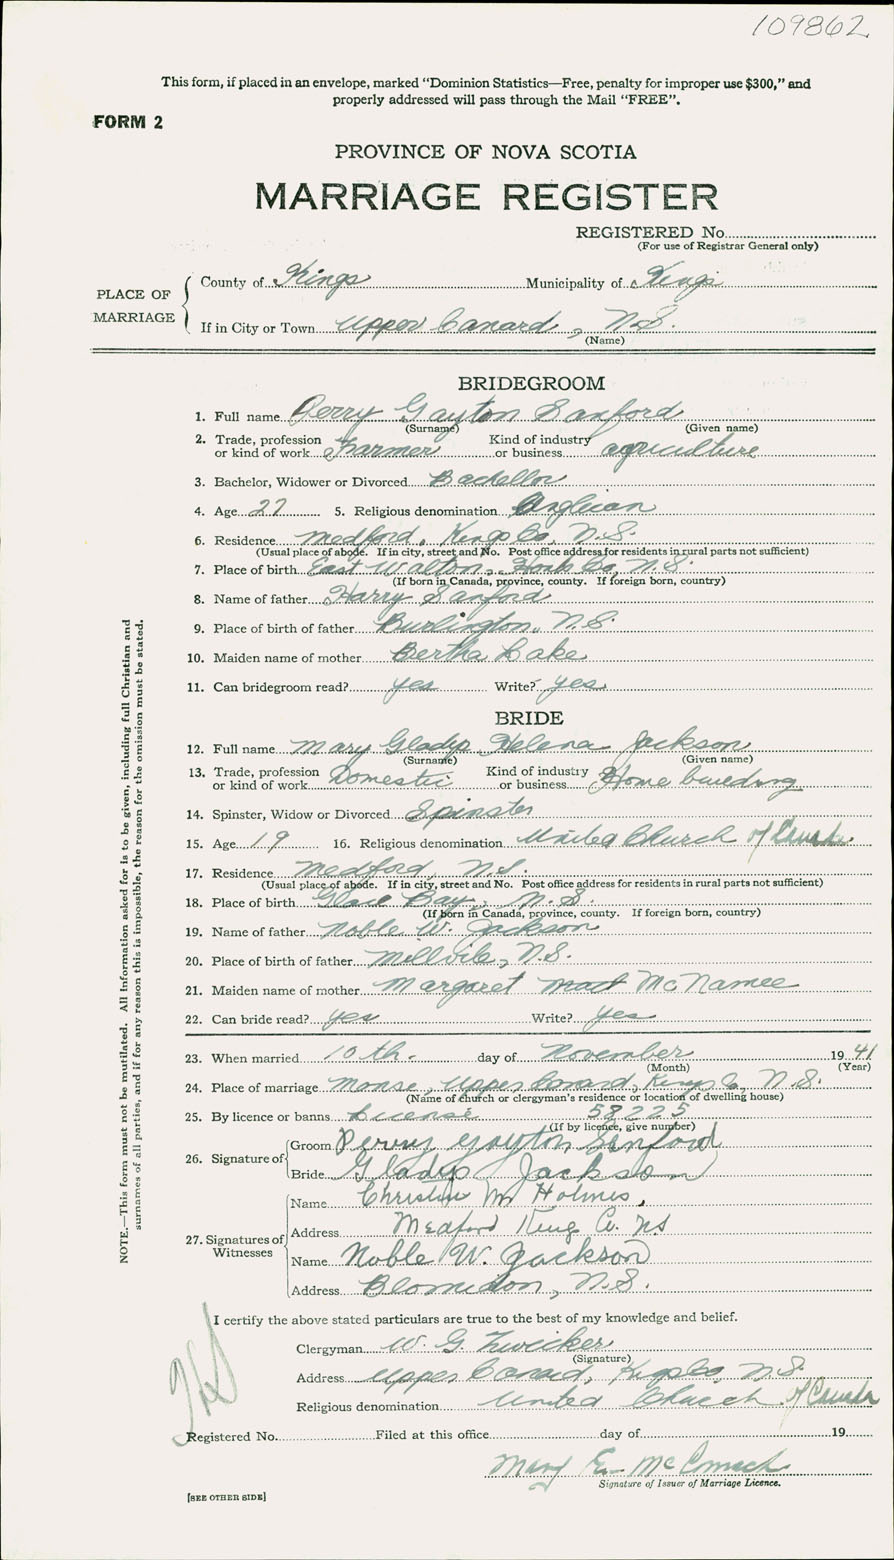 109862
This form, if placed in an envelope, marked "Dominion Statistics—Free, penalty for improper use $300," and
properly addressed will pass through the Mail "FREE".
FORM 2
PROVINCE OF NOVA SCOTIA
MARRIAGE REGISTER
REGISTERED No.
(For use of Registrar General only)
PLACE OF MARRIAGE
County of Kings Municipality of Kings
If in City or Town Upper Canard, N.S.
(Name)
BRIDEGROOM
1. Full name Perry Gayton Sanford
(Surname) (Given name)
2. Trade, profession or kind of work Farmer Kind of industry or business agriculture
3. Bachelor, Widower or Divorced Bachellor
4. Age 27 5. Religious denomination Anglican
6. Residence Medford, Kings Co. N.S.
(Usual place of abode. If in city, street and No. Post office address for residents in rural parts not sufficient)
7. Place of birth East Walton, Co. N.S.
(If born in Canada, province, county. If foreign born, country)
8. Name of father Harry Sanford
9. Place of birth of father Burlington, N.S.
10. Maiden name of mother Bertha Lake
11. Can bridegroom read? yes Write? yes
BRIDE
12. Full name Mary Gladys Helena Jackson
(Surname) (Given name)
13. Trade, profession or kind of work Domestic Kind of industry or business Home
14. Spinster, Widow or Divorced Spinster
15. Age 19 16. Religious denomination United Church of Canada
17. Residence Medford, N.S.
(Usual place of abode. If in city, street and No. Post office address for residents in rural parts not sufficient)
18. Place of birth Glace Bay, N.S.
(If born in Canada, province, county. If foreign born, country)
19. Name of father Noble W. Jackson
20. Place of birth of father Millvile, N.S.
21. Maiden name of mother Margaret McNamee
22. Can bride read? yes Write? yes
23. When married 10th. day of November 1941
(Month) (Year)
24. Place of marriage Manse, Upper Canard, Kings Co, N.S.
(Name of church or clergyman's residence or location of dwelling house)
25. By licence or banns License 58225
(If by licence, give number)
26. Signature of
Groom Perry Gayton Sanford
Bride Gladys Jackson
27. Signatures of Witnesses
Name Christin M Holmes,
Address Medford Kings Co. NS
Name Noble W. Jackson
Address Blomidon, N.S.
I certify the above stated particulars are true to the best of my knowledge and belief.
Clergyman W. G. Zwicker
(Signature)
Address Upper Canard, Kings Co, N.S.
Religious denomination United Church of Canada
Registered No. Filed at this office day of 19
Mary E. McCormack
Signature of Issuer of Marriage Licence.
[SEE OTHER SIDE]
NOTE.—This form must not be mutilated. All information asked for is to be given, including full Christian and
surnames of all parties, and if for any reason this is impossible, the reason for the omission must be stated.